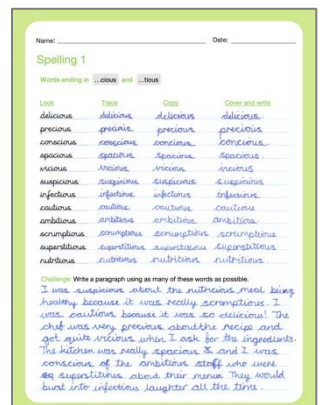 Name: Date:
Spelling 1
Words ending in ...cious and ...tious
Look Trace Copy Cover and write
delicious delicious delicious delicious.
precious precious precious precious
conscious conscious concious concious.
spacious spacious spacious spacious.
vicious vicious vicious vicious
suspicious suspicious suspicious suspicious
infectious infectious infectious infectious.
cautious cautious cautious cautious
ambitious ambitious ambitious ambitious
scrumptious scrumptious scrumptious scrumptious
superstitious superstitious superstitious superstitious
nutritious nutritious nutrititious nutritious.
Challenge: Write a paragraph using as many of these words as possible.
I was suspicious about the nutricious meal being
healthy because it was really scromptious. I
was cautious because it was so delicious! The
chef was very precious about the recipe and
got quite vicious when I ask for the ingredients.
The kitchen was really spacious & and I was
conscious of the ambitious staff who were
superstitious about their menu. They would
burst into infectious laughter all the time.